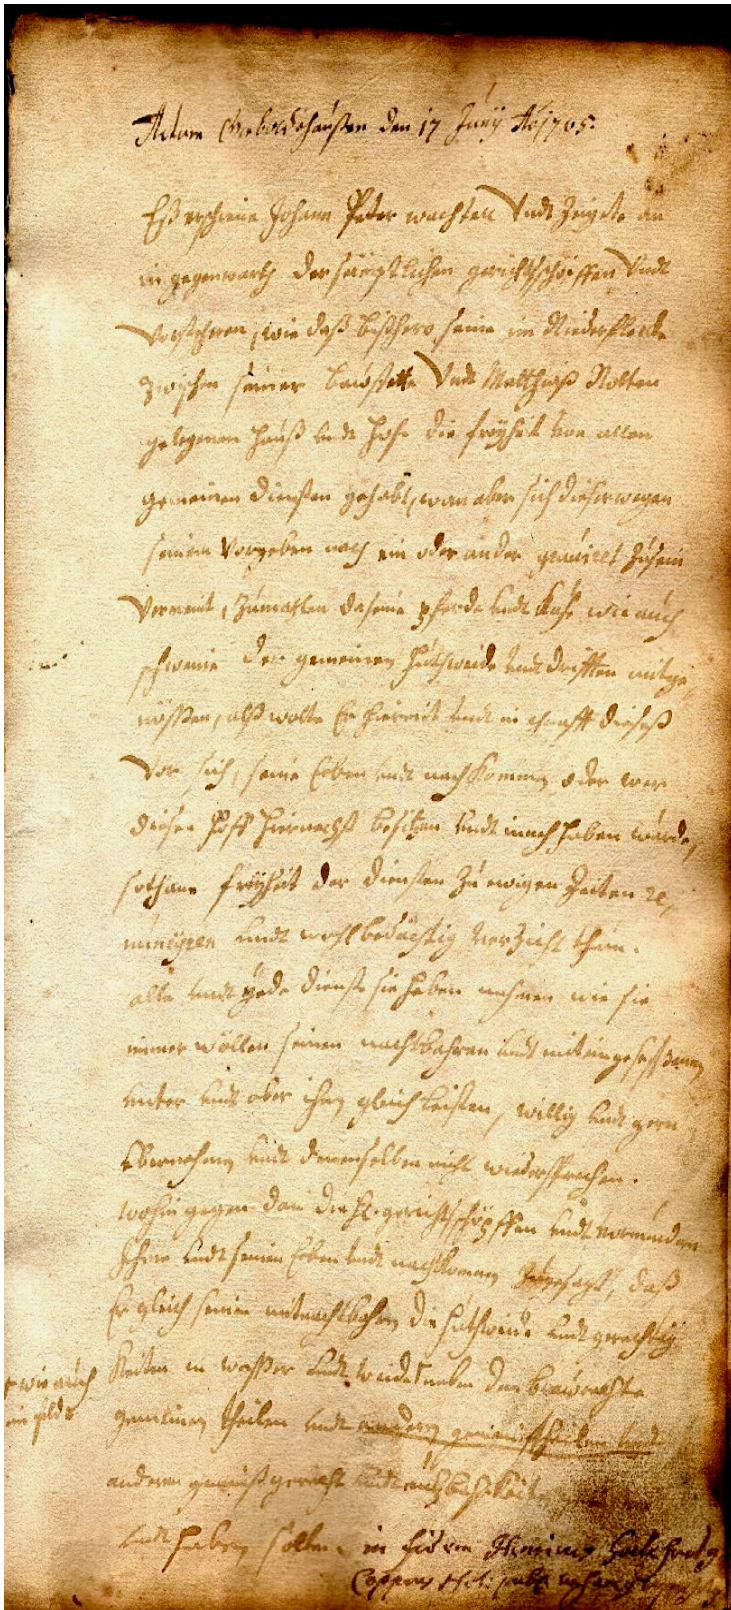 Actum Gieboldehaußen den 17 Junij Ao 1705.
Eß erschiene Johann Peter wachtell Undt Zeigete an
in gegenwarth der sämptlichen gerichtschöpffen Undt
Vorsteheren, wie daß bißhero seine im Niederflecke
zwischen seiner bawstette Undt Matthiaß Nolten
gelegenen Hauß undt Hoff die freyheit von allen
gemeinen diensten gehabt, wan aber sich dieserwegen
seinem Vorgeben nach ein oder ander graviret zu sein
Vermeint, Zumahlen da seine pferde undt Kühe wie auch
schweine der gemeinen Huthweide undt drifften mitge,
nößen, alß wolte Er hiermit undt in chrafft dieseß
Vor sich, seine Erben undt nachkommen oder wer
diesen Hoff hiernechst besitzen undt innehaben würde,
sothane freyheit der diensten zu ewigen Zeiten re,
nunciiren undt wohlbedächtig verzicht thun.
alle undt yede dienste sie haben nahmen wie sie
immer wöllen seinen nachbahren undt miteingeseßenen
unter undt ober ihm gleich leisten, willig undt gern
übernehmen undt denenselben nicht wiedersprechen.
wohingegen dan die H. gerichtschöpffen undt vormündere
Ihme undt seinen Erben undt nachkommen Zugesagt, daß
Er gleich seinen mitnachbahren die huthweide undt gerechtig
Keiten in waßer undt weide neben den bawrechte
+ wie auch
im felde
gemeinen theilen undt andern gemeinstheilen undt
anderen genuß gerecht undt nutzbahrkeiten
undt haben solten. in fidem Henning